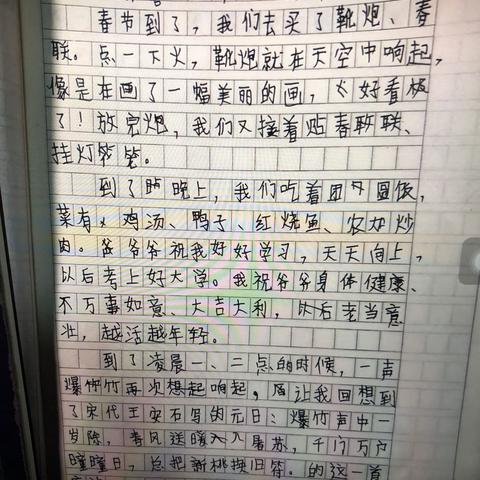 春节到了，我们去买了鞭炮、春
联。点一下火，鞭炮就在天空中响起，
像是在画了一幅美丽的画，太好看极
了！放完炮，我们又接着贴春联、
挂灯笼。
到了晚上，我们吃着团圆饭，
菜有鸡汤、鸭子、红烧鱼、农加炒
肉。爷爷祝我好好学习，天天向上，
以后考上好大学。我祝爷爷身体健康、
万事如意、大吉大利，以后老当意
壮，越活越年轻。
到了凌晨一、二点的时候，一声
爆竹再次响起，让我回想到
了宋代王安石写的元日：爆竹声中一
岁除，春风送暖入屠苏，千门万户
曈曈日，总把新桃换旧符。的这一首